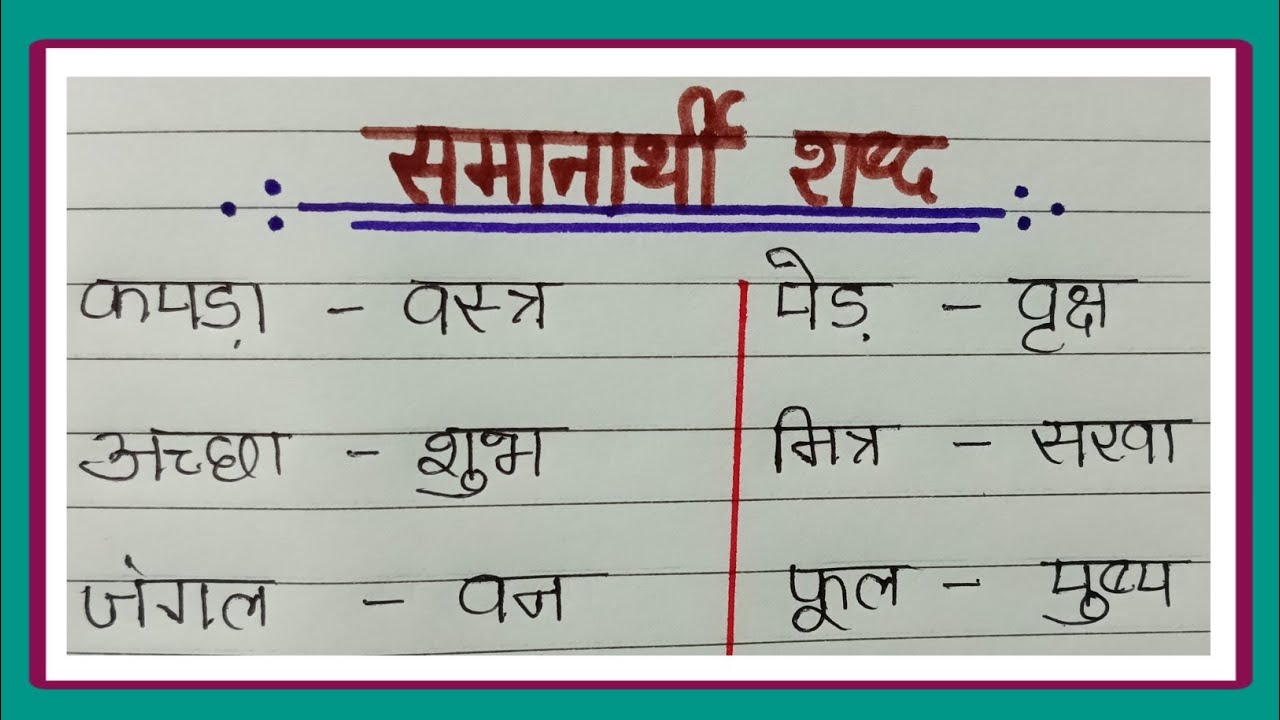 समानार्थी शब्द
कपड़ा - वस्त्र
अच्छा - शुभ
जंगल - वन
पेड़ - वृक्ष
मित्र - सखा
फूल - पुष्प